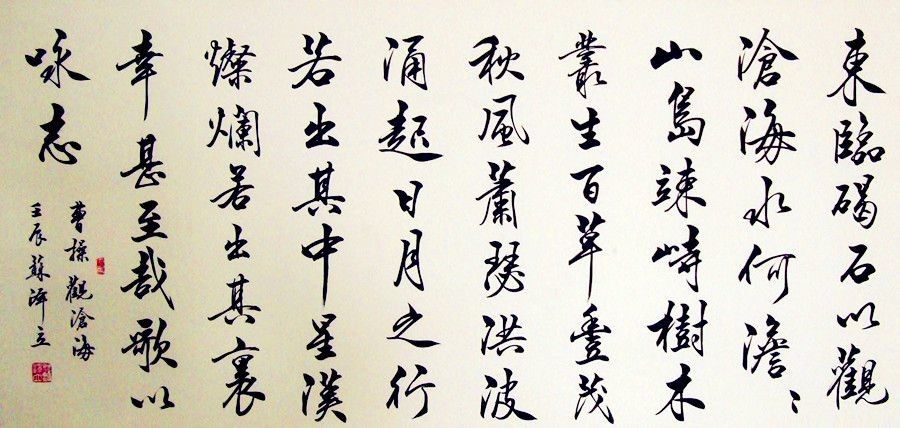 東臨碣石以觀
滄海水何澹〻
山島竦峙樹木
叢生百草豐茂
秋風蕭瑟洪波
涌起日月之行
若出其中星漢
燦爛若出其裏
幸甚至哉歌以
咏志
曹操觀滄海
壬辰蘇立